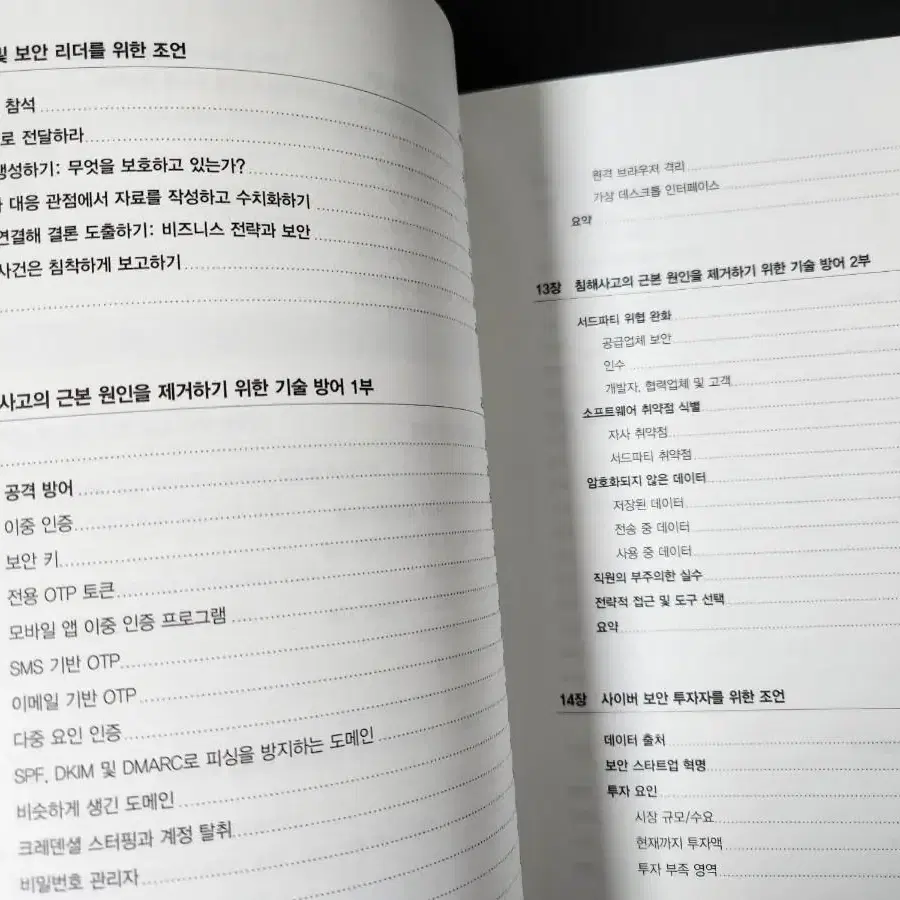 및 보안 리더를 위한 조언
참석
로 전달하라
생성하기: 무엇을 보호하고 있는가?
대응 관점에서 자료를 작성하고 수치화하기
연결해 결론 도출하기: 비즈니스 전략과 보안
사건은 침착하게 보고하기
사고의 근본 원인을 제거하기 위한 기술 방어 1부
공격 방어
이중 인증
보안 키
전용 OTP 토큰
모바일 앱 이중 인증 프로그램
SMS 기반 OTP
이메일 기반 OTP
다중 요인 인증
SPF, DKIM 및 DMARC로 피싱을 방지하는 도메인
비슷하게 생긴 도메인
크레덴셜 스터핑과 계정 탈취
비밀번호 관리자
원격 브라우저 격리
가상 데스크톱 인터페이스
요약
13장 침해사고의 근본 원인을 제거하기 위한 기술 방어 2부
서드파티 위협 완화
공급업체 보안
인수
개발자, 협력업체 및 고객
소프트웨어 취약점 식별
자사 취약점
서드파티 취약점
암호화되지 않은 데이터
저장된 데이터
전송 중 데이터
사용 중 데이터
직원의 부주의한 실수
전략적 접근 및 도구 선택
요약
14장 사이버 보안 투자자를 위한 조언
데이터 출처
보안 스타트업 혁명
투자 요인
시장 규모/수요
현재까지 투자액
투자 부족 영역